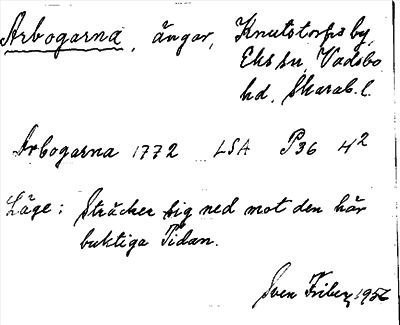 Arbogarna, ängar, Knutstorps by,
Eks sn, Vadsbo
hd, Skarab. l.
Arbogarna 1772 LSA P36 4²
Läge: Sträcker sig ned mot den här
buktiga Tidan.
Sven Friberg 1956